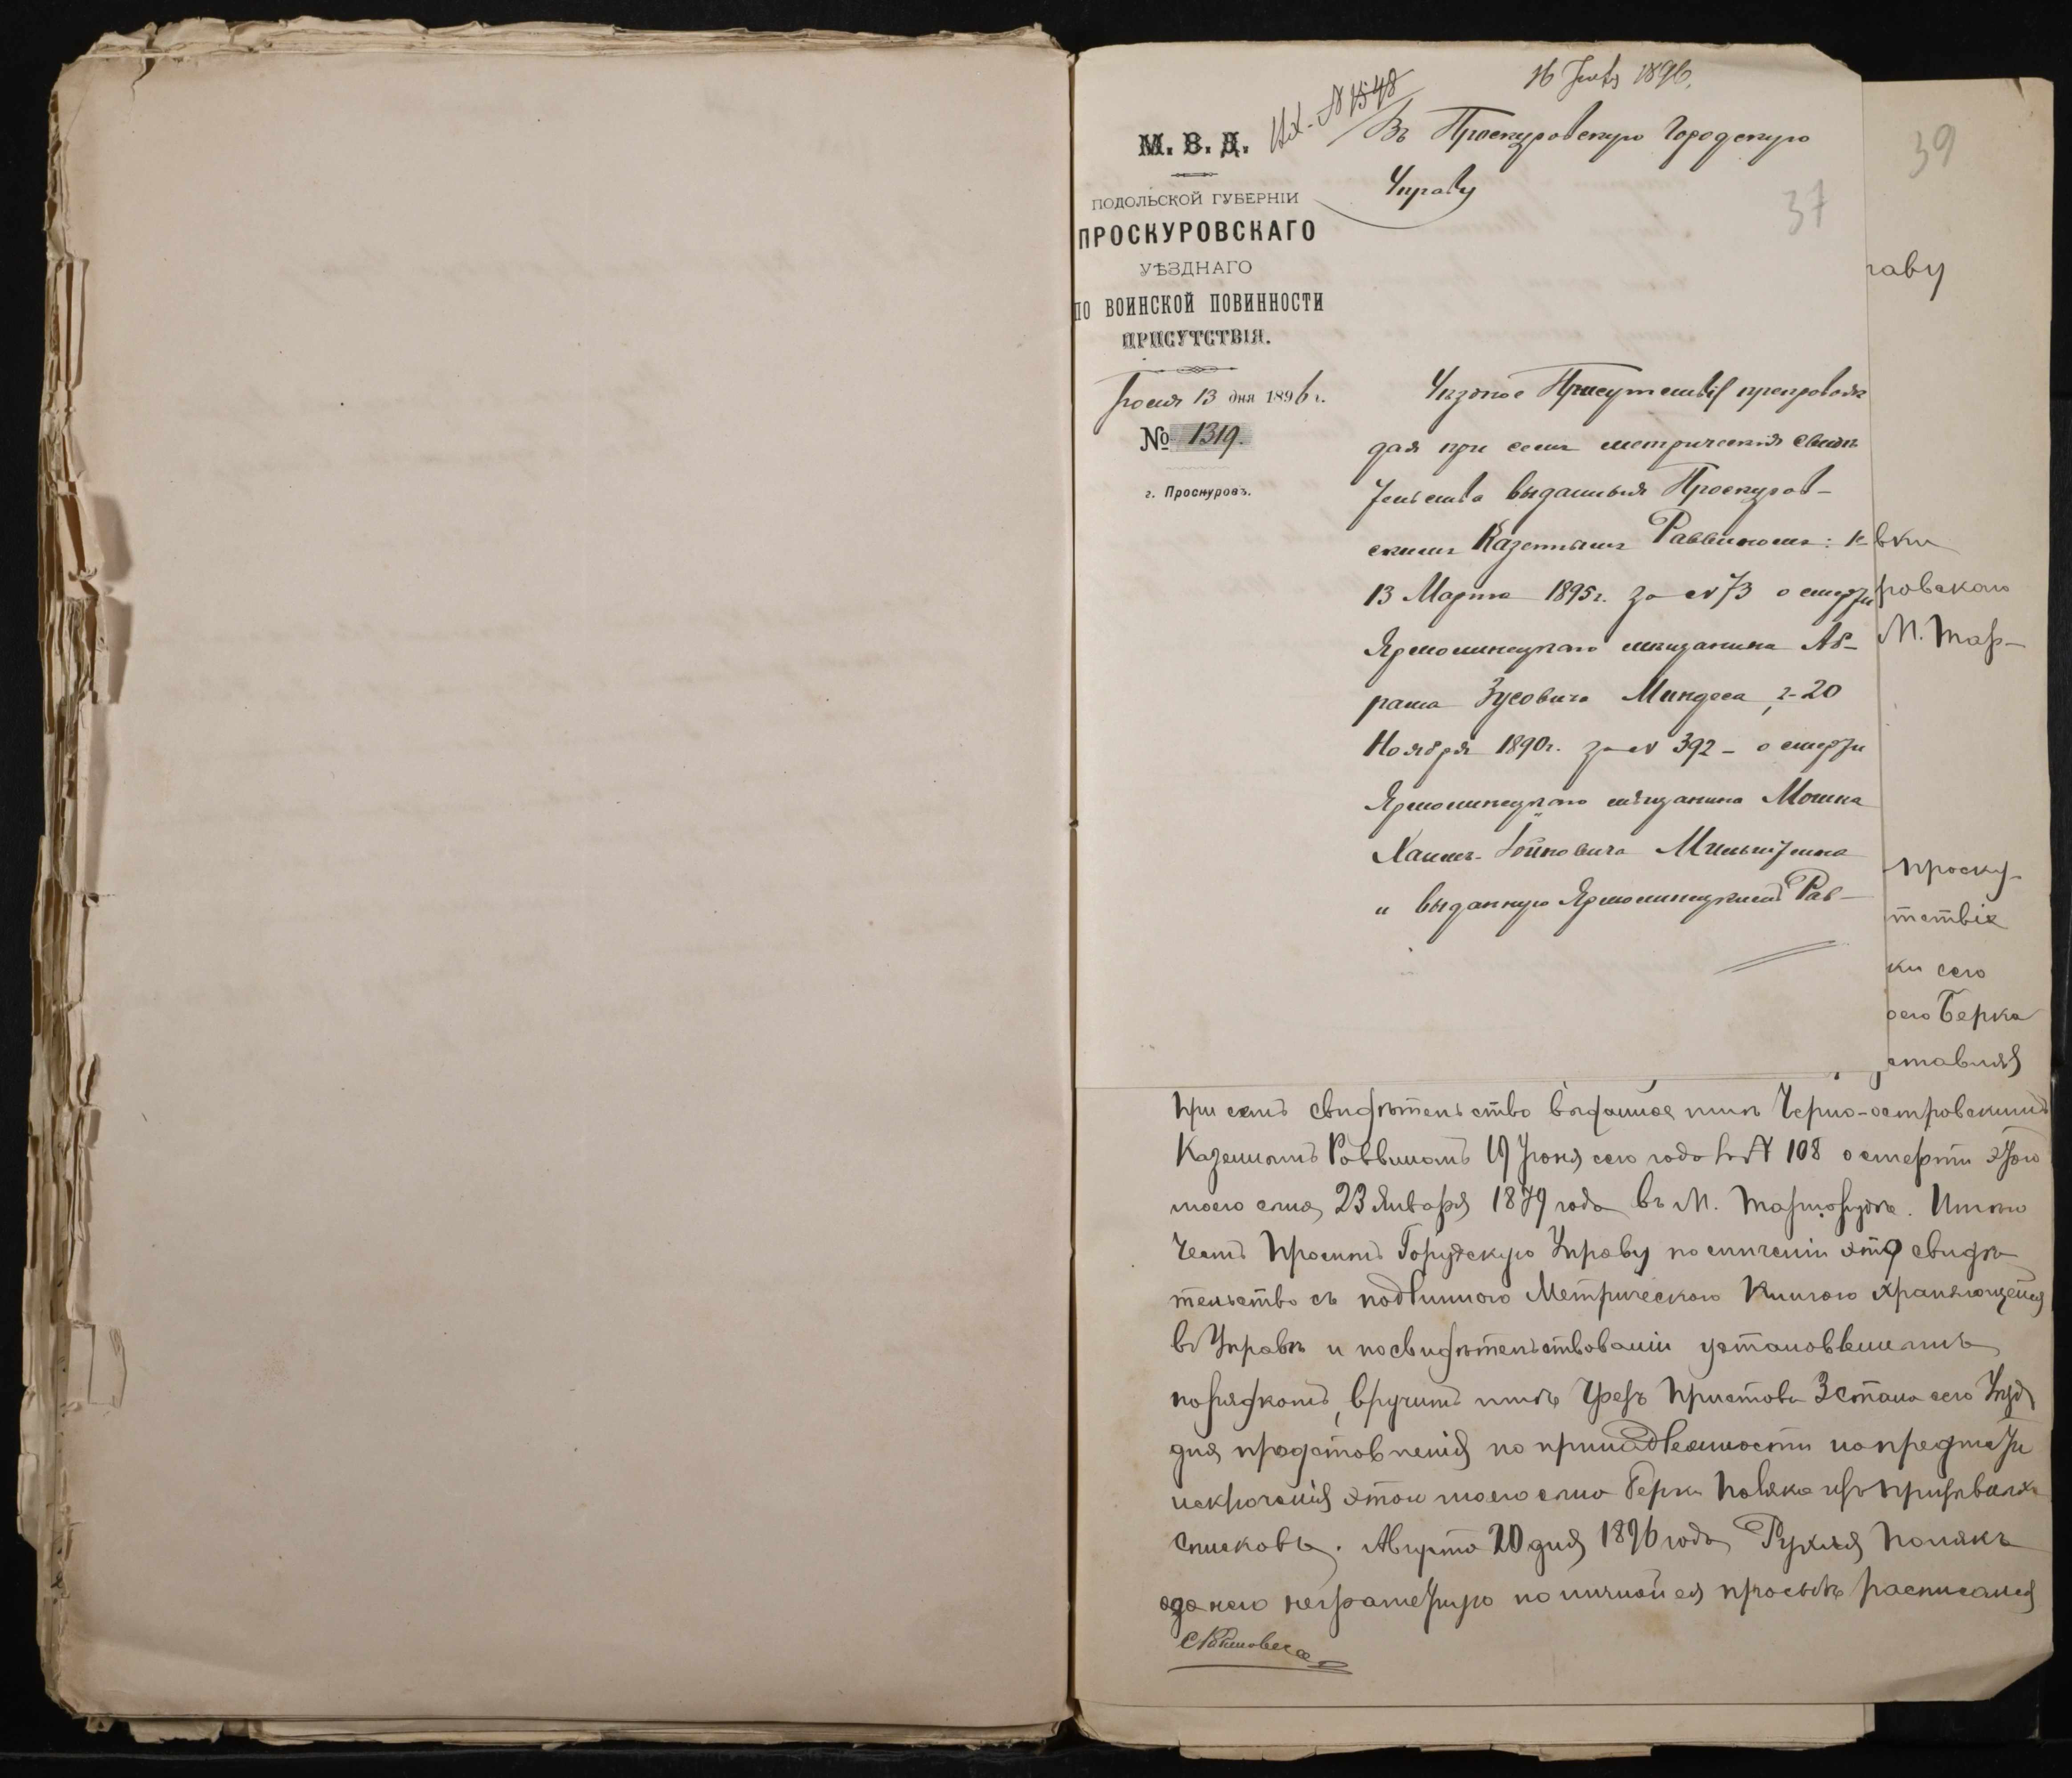 16 Іюля 1896.
Вх. № 1548
Въ Проскуровскую Городскую
Управу
39
37
М. В. Д.
ПОДОЛЬСКОЙ ГУБЕРНІИ
ПРОСКУРОВСКАГО
УѢЗДНАГО
ПО ВОИНСКОЙ ПОВИННОСТИ
ПРИСУТСТВІЯ.
Іюля 13 дня 1896 г.
№ 1319.
г. Проскуровъ.
Уѣздное Присутствіе препровож
дая при семъ метрическія свидѣ
тельства выданныя Проскуров-
скимъ Казеннымъ Раввиномъ: 1-
13 Марта 1895 г. за № 73 о смерти
Ярмолинецкаго мѣщанина Аб-
рама Зусовича Миндеса, 2-20
Ноября 1890 г. за № 392 - о смерти
Ярмолинецкаго мѣщанина Мошка
Хаимъ-Іойновича
и выданную Ярмолинецкимъ Рав-
раву
вки
ровскаго
М. Тар-
Проску-
тствіе
ки сего
оего Берка
ставляя
при семъ свидѣтельство выданное мнѣ Черно-островскимъ
Казеннымъ Раввиномъ 19 Іюня сего года № 108 о смерти этого
моего сына 23 Января 1879 года въ М. Тарнорудѣ. Имѣю
честь просить Городскую Управу по сличеніи это свидѣ
тельство съ подлинною Метрическою Книгою хранящейся
въ Управѣ и по свидѣтельствованіи установленнымъ
порядкомъ, вручить мнѣ чрезъ Пристава 3 стана сего Уѣзда
для представленія по принадлежности на предметъ
исключенія этого моего сына Берка Поляка изъ призывныхъ
списковъ. Августа 20 дня 1896 года Рухля Полякъ
а за нею неграмотную по личной ея просьбѣ расписался